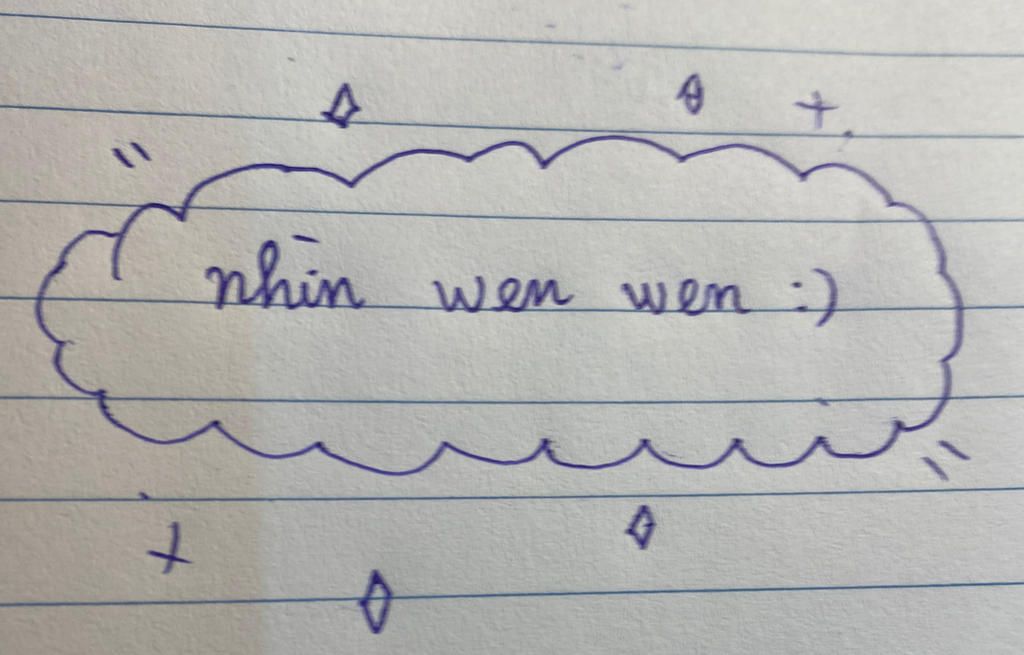 nhìn wen wen :)